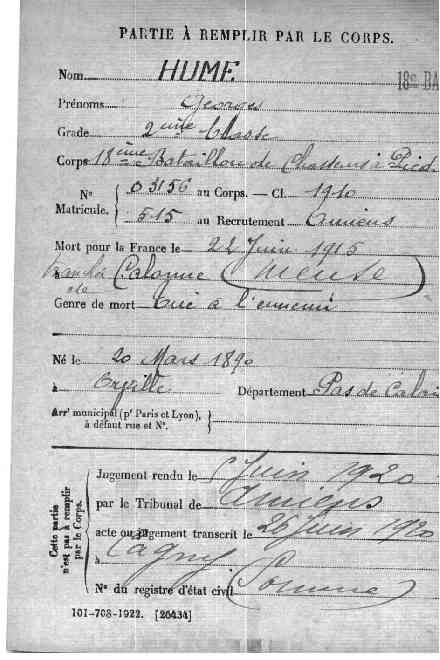 PARTIE À REMPLIR PAR LE CORPS.
Nom HUME
18e BA
Prénoms Georges
Grade 2ème Classe
Corps 18ème Bataillon de Chasseurs à Pied.
No Matricule. 03156 au Corps. — Cl. 1910
515 au Recrutement Amiens
Mort pour la France le 22 Juin 1915
à tranchée de Calonne (Meuse)
Genre de mort tué à l'ennemi
Né le 20 Mars 1890
à Orville Département Pas de Calais
Arrt municipal (pr Paris et Lyon),
à défaut rue et No.
Cette partie n'est pas à remplir par le Corps.
Jugement rendu le Juin 1920
par le Tribunal de Amiens
acte ou jugement transcrit le 26 Juin 1920
à Cagny
No du registre d'état civil (Somme)
101-708-1922. [26434]